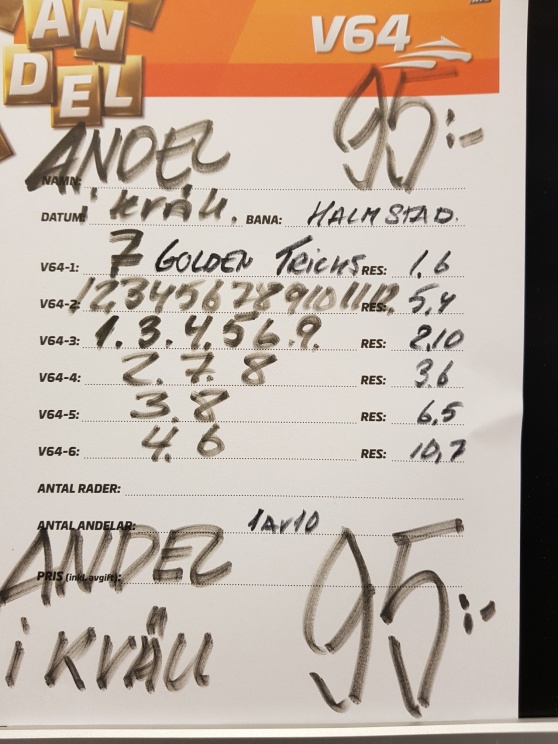 ANDEL
V64
ANDEL 95:-
NAMN:
DATUM: i kväll. BANA: HALMSTAD.
V64-1: 7 GOLDEN TRICKS RES: 1,6
V64-2: 123456789101112 RES: 5,4
V64-3: 1.3.4.5 6.9. RES: 2,10
V64-4: 2. 7. 8 RES: 3,6
V64-5: 3. 8 RES: 6,5
V64-6: 4. 6 RES: 10,7
ANTAL RADER:
ANTAL ANDELAR: 1 AV 10
ANDEL 95:-
PRIS (inkl. avgift):
i KVÄLL